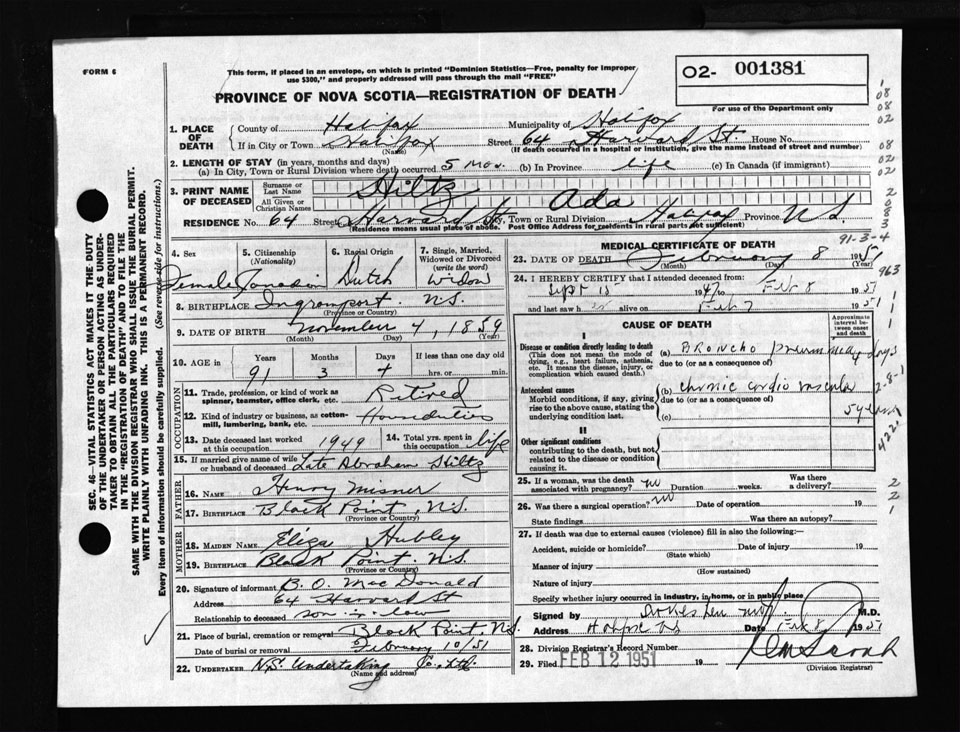 FORM 6
This form, if placed in an envelope, on which is printed "Dominion Statistics—Free, penalty for improper
use $300," and properly addressed will pass through the mail "FREE"
02- 001381
For use of the Department only
PROVINCE OF NOVA SCOTIA—REGISTRATION OF DEATH
1. PLACE OF DEATH { County of Halifax Municipality of Halifax
If in City or Town Halifax (Name) Street 64 Harvard St. House No.
(If death occurred in a hospital or institution, give the name instead of street and number)
2. LENGTH OF STAY (in years, months and days)
(a) In City, Town or Rural Division where death occurred 5 mos. (b) In Province life (c) In Canada (if immigrant)
3. PRINT NAME OF DECEASED { Surname or Last Name Hiltz
All Given or Christian Names Ada
RESIDENCE No. 64 Street Harvard St. City, Town or Rural Division Halifax Province N.S.
(Residence means usual place of abode. Post Office Address for residents in rural parts not sufficient)
4. Sex Female
5. Citizenship (Nationality) Canadian
6. Racial Origin Dutch
7. Single, Married, Widowed or Divorced (write the word) Widow
8. BIRTHPLACE Ingramport, N.S.
(Province or Country)
9. DATE OF BIRTH November 4, 1859
(Month) (Day) (Year)
10. AGE in Years 91 Months 3 Days 4 If less than one day old hrs. or min.
OCCUPATION
11. Trade, profession, or kind of work as spinner, teamster, office clerk, etc. Retired
12. Kind of industry or business, as cotton-mill, lumbering, bank, etc. Housduties
13. Date deceased last worked at this occupation 1949
14. Total yrs. spent in this occupation life
15. If married give name of wife or husband of deceased Late Abraham Hiltz
FATHER
16. NAME Henry Misner
17. BIRTHPLACE Black Point, N.S.
(Province or Country)
MOTHER
18. MAIDEN NAME Eliza Hubley
19. BIRTHPLACE Black Point N.S.
(Province or Country)
20. Signature of informant B. O. MacDonald
Address 64 Harvard St
Relationship to deceased son in law
21. Place of burial, cremation or removal Black Point, N.S.
Date of burial or removal February 10/51
22. UNDERTAKER N.S. Undertaking Co. Ltd.
(Name and address)
MEDICAL CERTIFICATE OF DEATH
91-3-4
23. DATE OF DEATH February 8 1951
(Month) (Day) (Year)
24. I HEREBY CERTIFY that I attended deceased from:
Sept 15 1947 to Feb 8 1951
and last saw h alive on Feb 7 1951
CAUSE OF DEATH
Approximate interval between onset and death
I
Disease or condition directly leading to death
(This does not mean the mode of dying, e.g., heart failure, asthenia, etc. It means the disease, injury, or complication which caused death.)
(a) Broncho pneumonia days
due to (or as a consequence of)
Antecedent causes
Morbid conditions, if any, giving rise to the above cause, stating the underlying condition last.
(b) chronic cardio vascular
due to (or as a consequence of)
(c) 5 years
II
Other significant conditions
contributing to the death, but not related to the disease or condition causing it.
25. If a woman, was the death associated with pregnancy? no Duration weeks. Was there a delivery?
26. Was there a surgical operation? no Date of operation
State findings Was there an autopsy?
27. If death was due to external causes (violence) fill in also the following:—
Accident, suicide or homicide? Date of injury 19
(State which)
Manner of injury
(How sustained)
Nature of injury
Specify whether injury occurred in industry, in home, or in public place
Signed by M.D.
Address Halifax N.S. Date Feb 8 1951
28. Division Registrar's Record Number
29. Filed FEB 12 1951 19
(Division Registrar)
SEC. 46—VITAL STATISTICS ACT MAKES IT THE DUTY
OF THE UNDERTAKER OR PERSON ACTING AS UNDER-
TAKER TO OBTAIN ALL THE PARTICULARS REQUIRED
IN THE "REGISTRATION OF DEATH" AND TO FILE THE
SAME WITH THE DIVISION REGISTRAR WHO SHALL ISSUE THE BURIAL PERMIT.
WRITE PLAINLY WITH UNFADING INK. THIS IS A PERMANENT RECORD.
Every item of information should be carefully supplied. (See reverse side for instructions.)